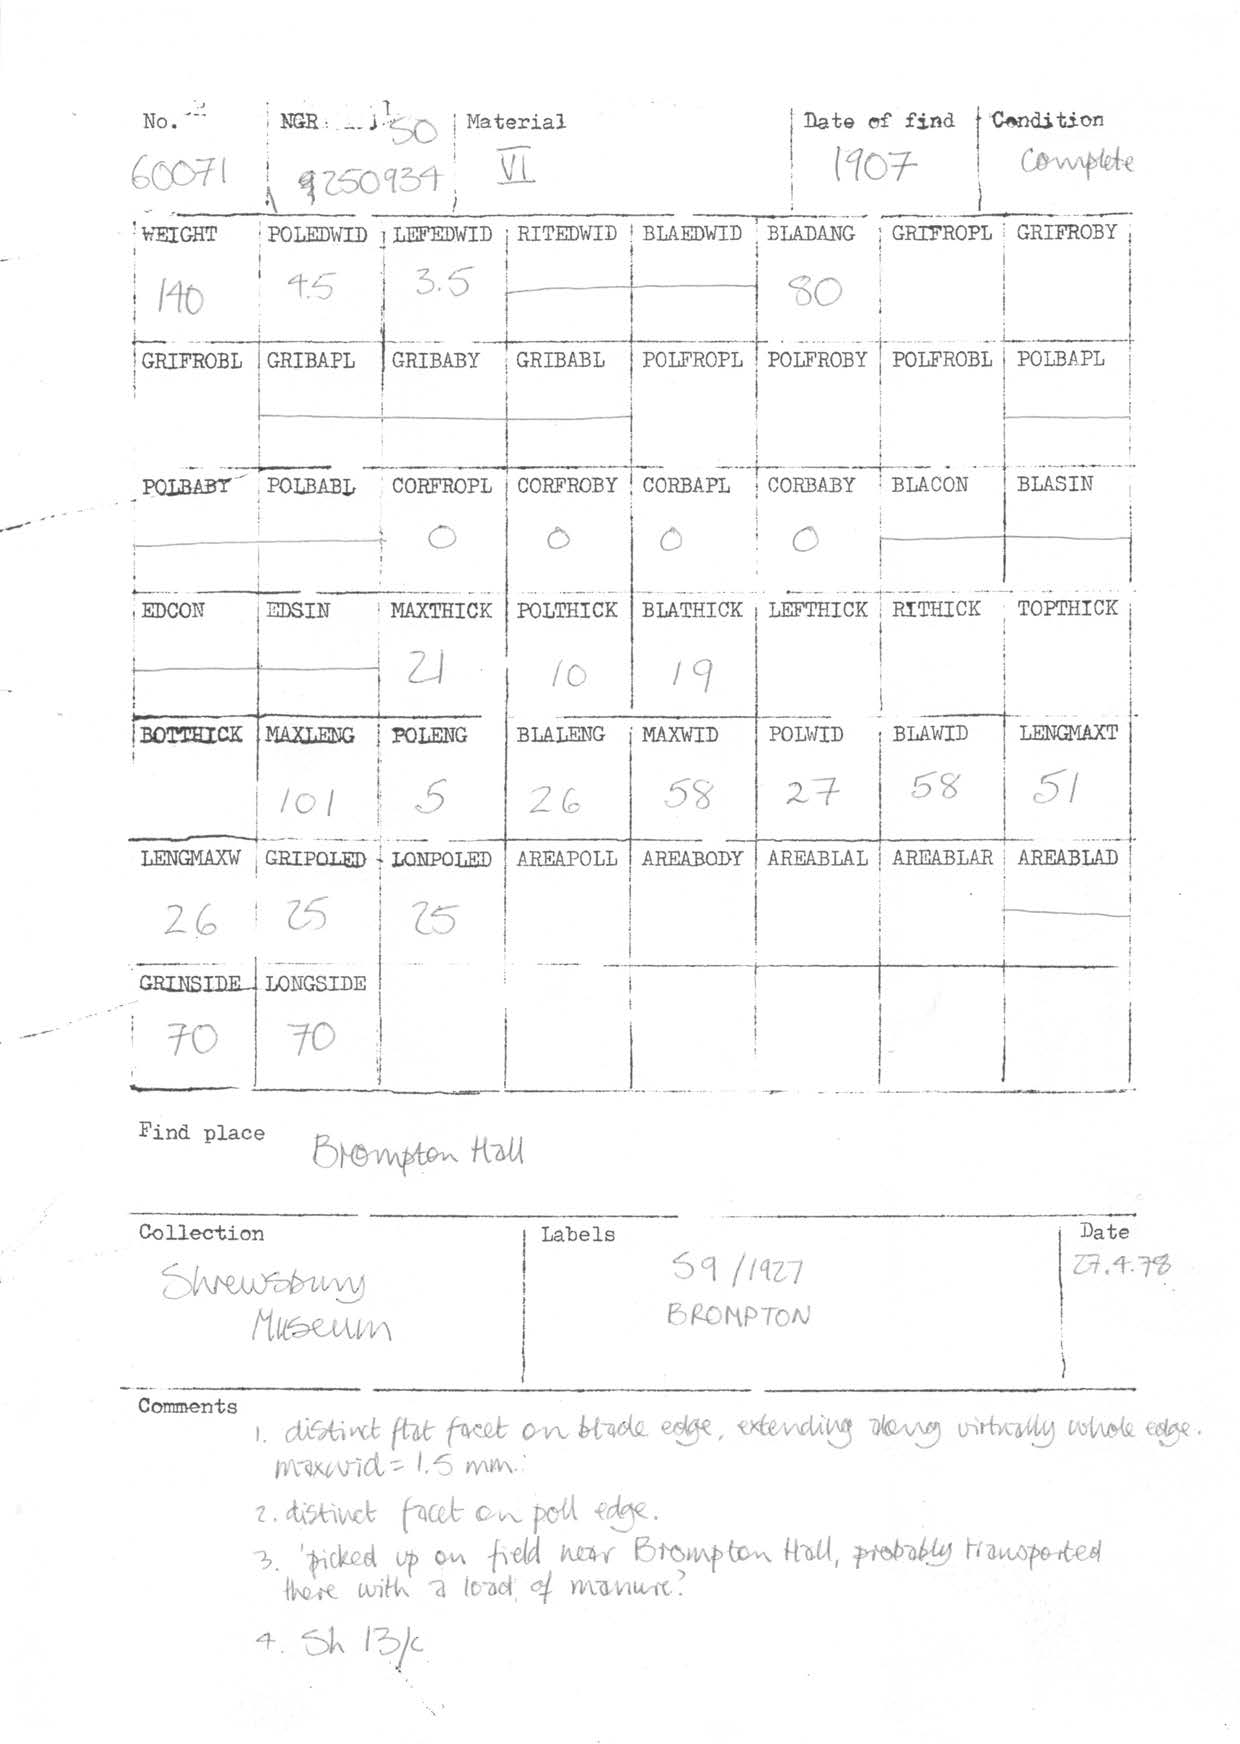 No. NGR 50 Material Date of find Condition
60071 9250934 VI 1907 Complete
WEIGHT POLEDWID LEFEDWID RITEDWID BLAEDWID BLADANG GRIFROPL GRIFROBY
140 4.5 3.5 80
GRIFROBL GRIBAPL GRIBABY GRIBABL POLFROPL POLFROBY POLFROBL POLBAPL
POLBABY POLBABL CORFROPL CORFROBY CORBAPL CORBABY BLACON BLASIN
0 0 0 0
EDCON EDSIN MAXTHICK POLTHICK BLATHICK LEFTHICK RITHICK TOPTHICK
21 10 19
BOTTHICK MAXLENG POLENG BLALENG MAXWID POLWID BLAWID LENGMAXT
101 5 26 58 27 58 51
LENGMAXW GRIPOLED LONPOLED AREAPOLL AREABODY AREABLAL AREABLAR AREABLAD
26 25 25
GRINSIDE LONGSIDE
70 70
Find place Brompton Hall
Collection Labels Date
Shrewsbury 59/1927 27.4.78
Museum BROMPTON
Comments
1. distinct flat facet on blade edge, extending along virtually whole edge.
maxwid = 1.5 mm.
2. distinct facet on poll edge.
3. 'picked up on field near Brompton Hall, probably transported
there with a load of manure'
4. Sh 13/c